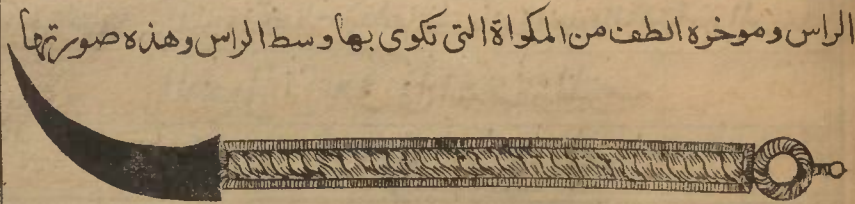 الراس وموخره الطف من المكواة التى تكوى بها وسط الراس وهذه صورتها